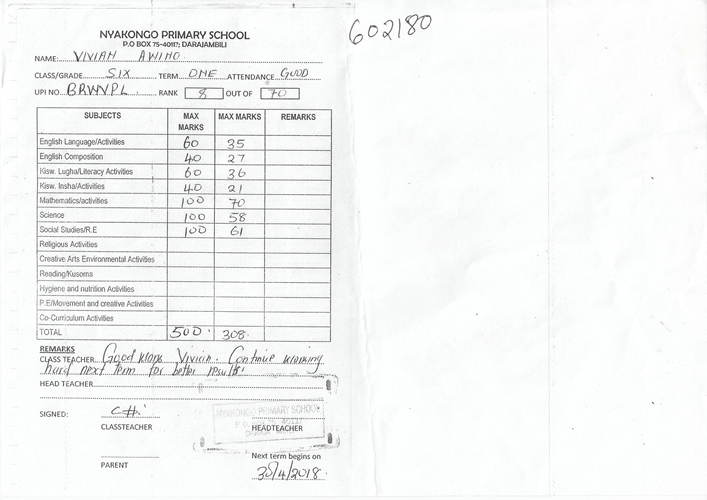 602180
NYAKONGO PRIMARY SCHOOL
P.O BOX 75-40117; DARAJAMBILI
NAME: VIVIAN AWINO
CLASS/GRADE SIX TERM ONE ATTENDANCE GOOD
UPI NO. BRWVPL RANK 8 OUT OF 70
SUBJECTS MAX MARKS MAX MARKS REMARKS
English Language/Activities 60 35
English Composition 40 27
Kisw. Lugha/Literacy Activities 60 36
Kisw. Insha/Activities 40 21
Mathematics/activities 100 70
Science 100 58
Social Studies/R.E 100 61
Religious Activities
Creative Arts Environmental Activities
Reading/Kusoma
Hygiene and nutrition Activities
P.E/Movement and creative Activities
Co-Curriculum Activities
TOTAL 500 308
REMARKS
CLASS TEACHER Good Vivian. Continue working
hard next term for better results
HEAD TEACHER
SIGNED:
NYAKONGO PRIMARY SCHOOL
CLASSTEACHER HEADTEACHER
Next term begins on
PARENT 30/4/2018.